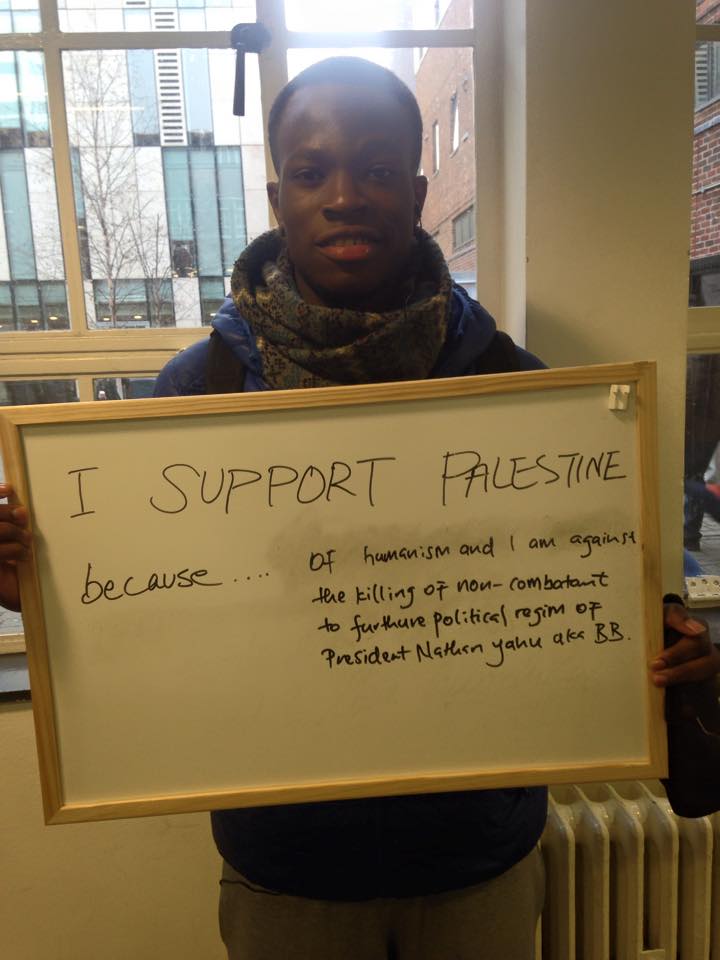 I SUPPORT PALESTINE
because .... Of humanism and I am against
the killing of non-combatant
to furthure political regim of
President Nathan yahu aka BB.